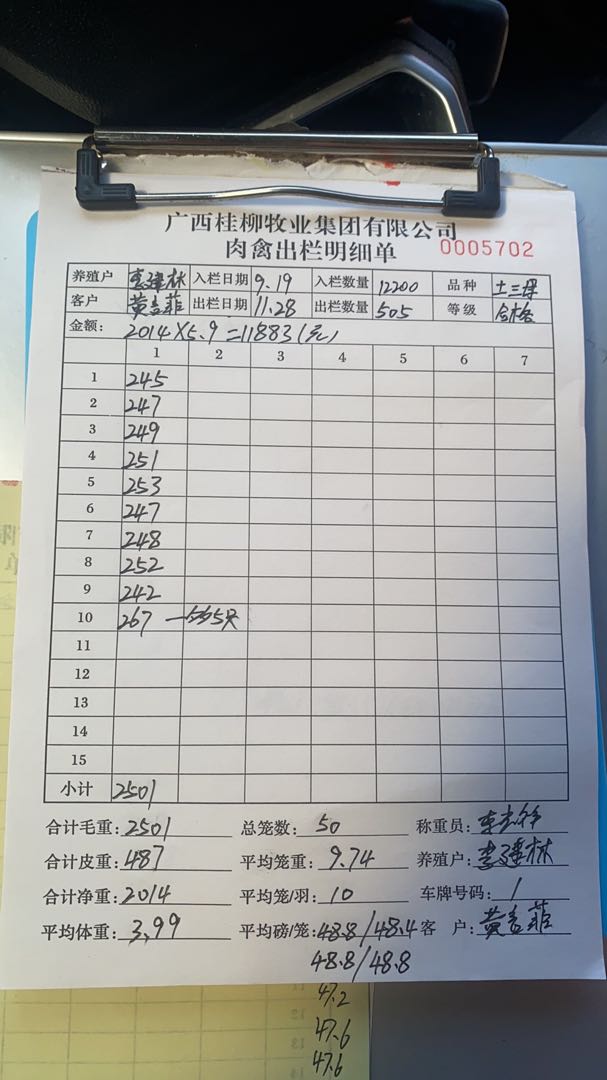 广西桂柳牧业集团有限公司
肉禽出栏明细单 0005702
养殖户 李建林 入栏日期 9.19 入栏数量 12200 品种 土三1号
客户 黄吉菲 出栏日期 11.28 出栏数量 505 等级 合格
金额: 2014×5.9=11883(元)
1 2 3 4 5 6 7
1 245
2 247
3 249
4 251
5 253
6 247
7 248
8 252
9 242
10 267 一多5只
11
12
13
14
15
小计 2501
合计毛重: 2501 总笼数: 50 称重员:
合计皮重: 487 平均笼重: 9.74 养殖户: 李建林
合计净重: 2014 平均笼/羽: 10 车牌号码: 1
平均体重: 3.99 平均磅/笼: 48.8/48.4 客 户: 黄吉菲
48.8/48.8
47.2
47.6
47.6